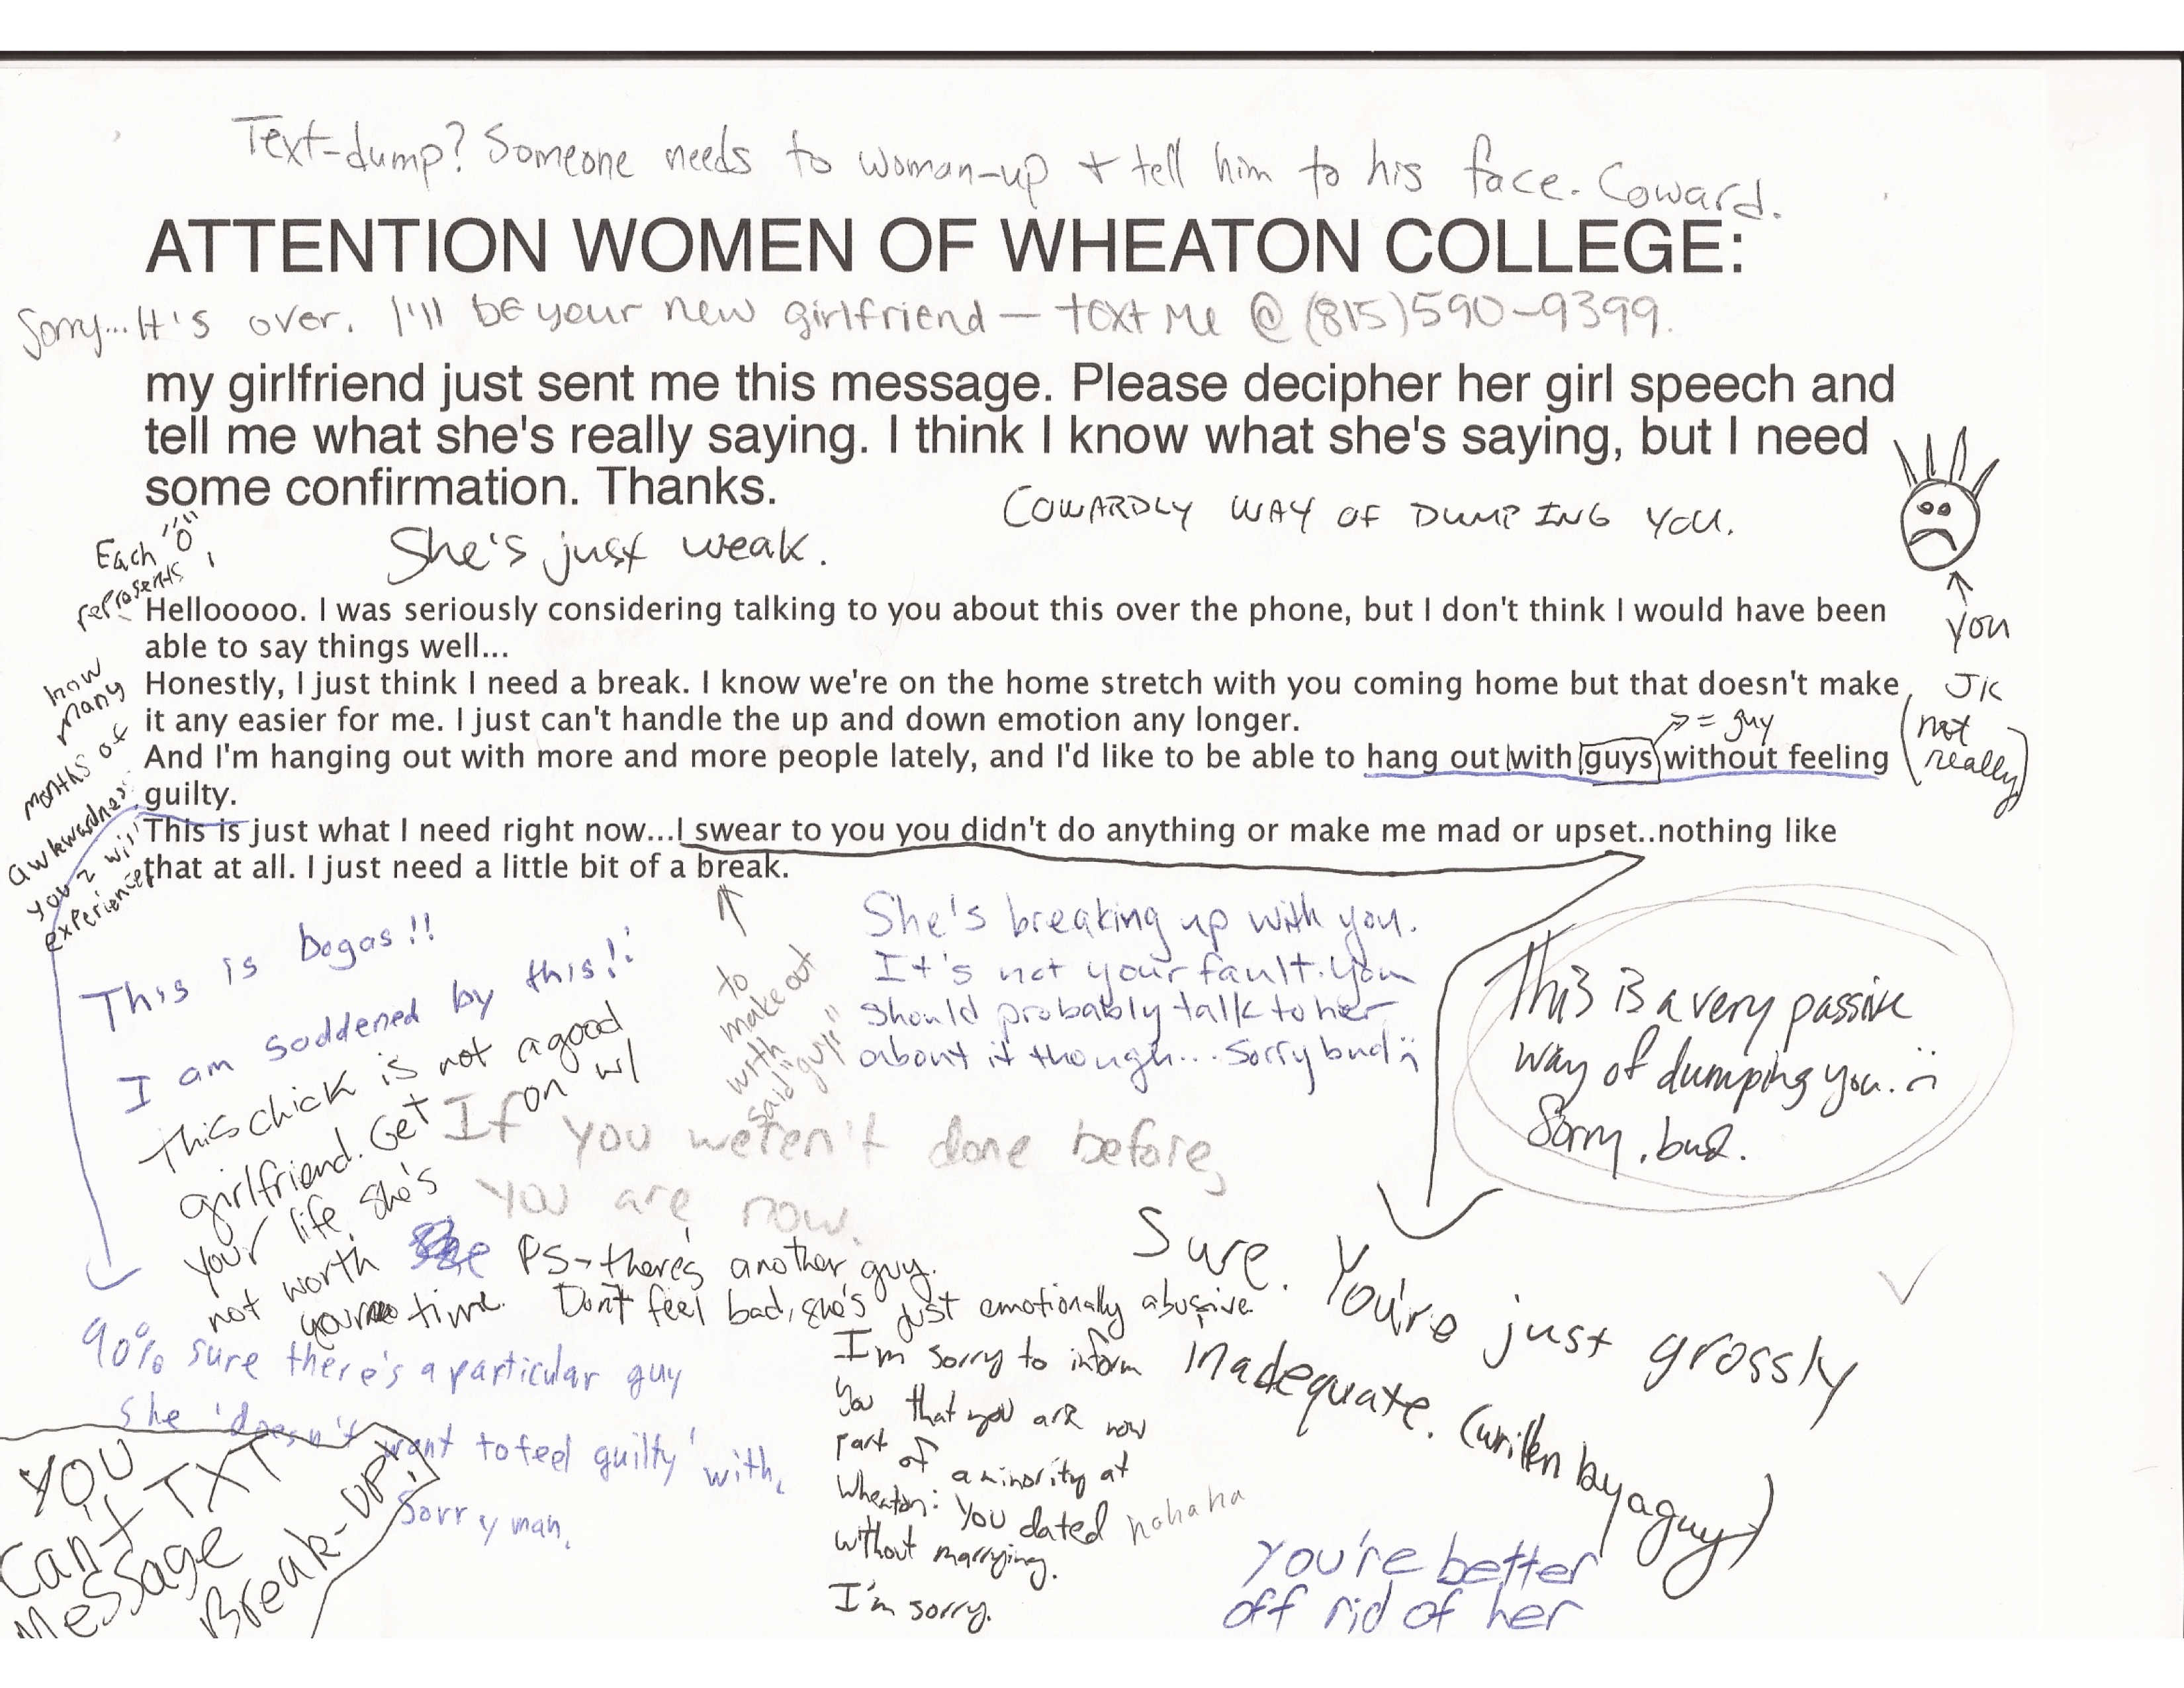 Text-dump? Someone needs to woman-up + tell him to his face. Coward.
ATTENTION WOMEN OF WHEATON COLLEGE:
Sorry... It's over. I'll be your new girlfriend — text me @ (815)590-9399.
my girlfriend just sent me this message. Please decipher her girl speech and
tell me what she's really saying. I think I know what she's saying, but I need
some confirmation. Thanks.
COWARDLY WAY OF DUMPING YOU.
She's just weak.
you
JK
(not
really)
Each "o"
represents
how
many
months of
awkwardness
you 2 will
experience
Hellooooo. I was seriously considering talking to you about this over the phone, but I don't think I would have been
able to say things well...
Honestly, I just think I need a break. I know we're on the home stretch with you coming home but that doesn't make
it any easier for me. I just can't handle the up and down emotion any longer.
= guy
And I'm hanging out with more and more people lately, and I'd like to be able to hang out with guys without feeling
guilty.
This is just what I need right now...I swear to you you didn't do anything or make me mad or upset..nothing like
that at all. I just need a little bit of a break.
to
make out
with
said "guy"
This is bogas!!
I am soddened by this!!
She's breaking up with you.
It's not your fault. You
should probably talk to her
about it though... Sorry bud :(
This is a very passive
way of dumping you. :(
Sorry, bud.
This chick is not a good
girlfriend. Get on w/
your life, she's
not worth
your time.
If you weren't done before,
you are now.
PS - there's another guy.
Don't feel bad, she's just emotionally abusive.
Sure. You're just grossly
inadequate. (written by a guy)
90% sure there's a particular guy
she 'doesn't want to feel guilty' with,
Sorry man.
I'm sorry to inform
you that you are now
part of a minority at
Wheaton: You dated
without marrying.
I'm sorry.
hahaha
YOU
Can't TXT
Message
Break-UP!
You're better
off rid of her